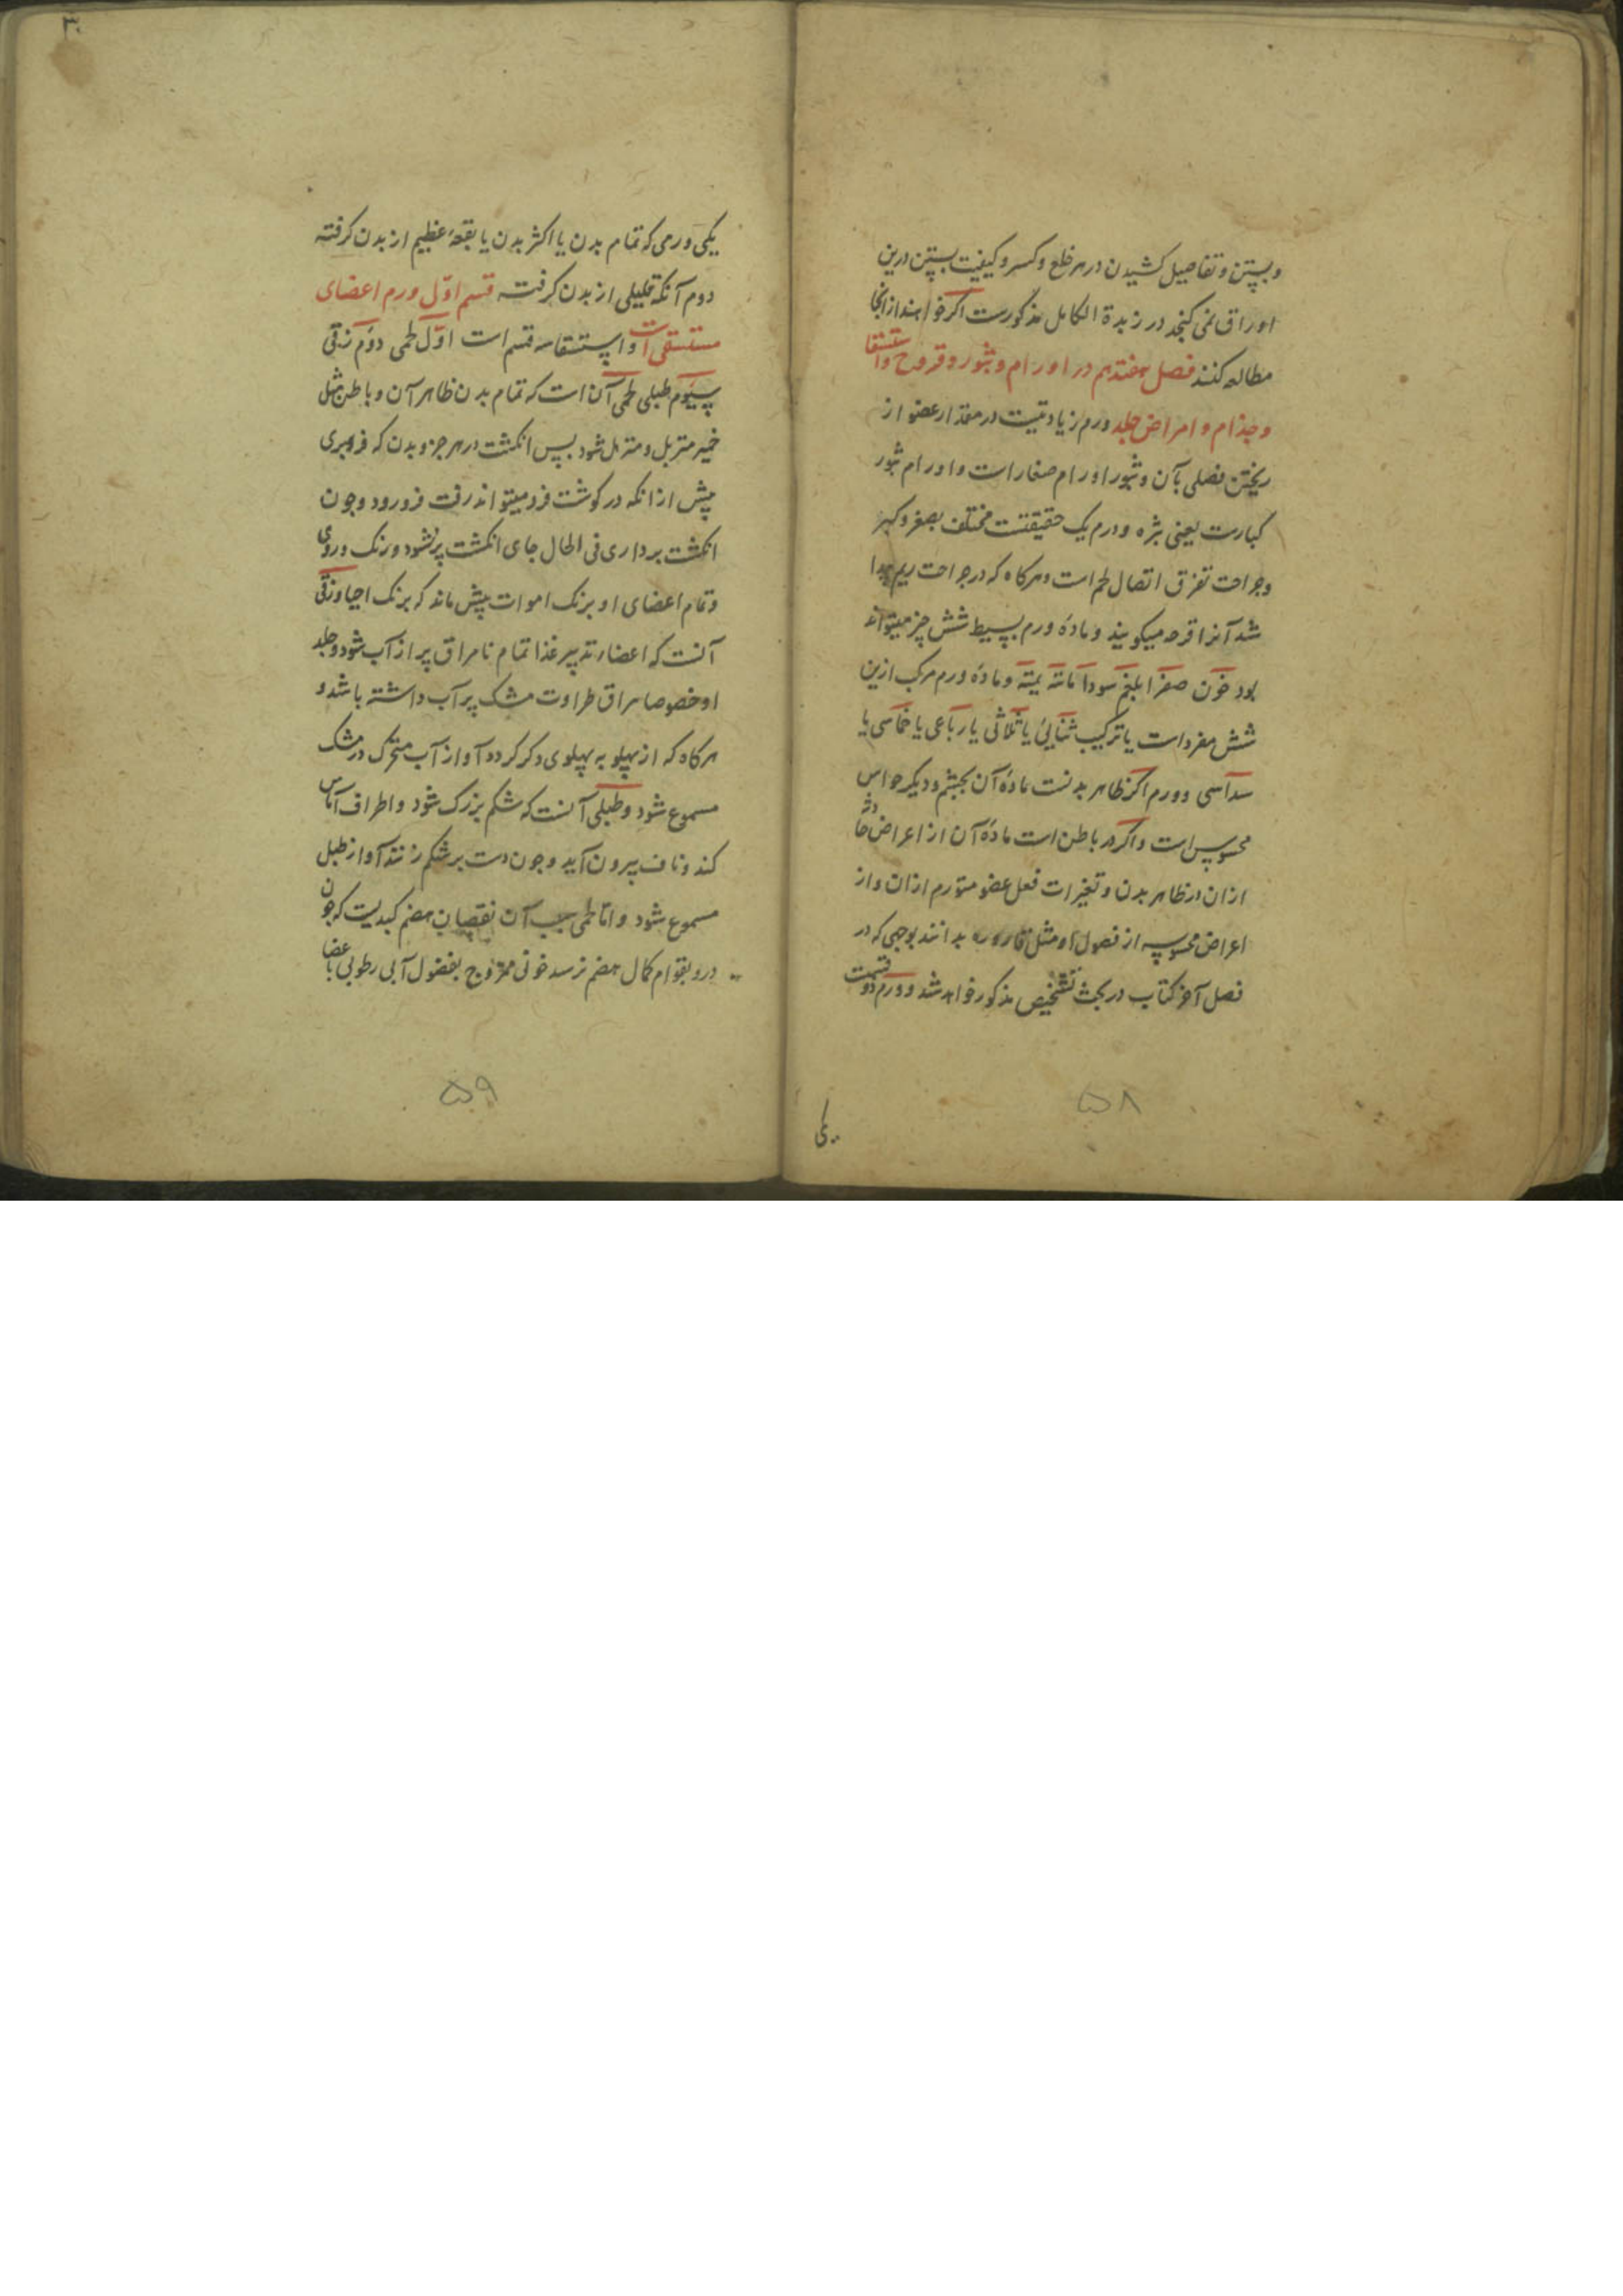 وبستن وتفاصیل کشیدن در هر خلع وکسر وکیفیت بستن درین
اوراق نمی کنجد در زبدة الکامل مذکورست اکر خواهند از انجا
مطاله کنند فصل هفتدهم در اورام وبثور وقروح واستسقا
وجذام وامراض جلد ورم زیادتیست در مقدار عضو از
ریختن فضلی بآن وبثور اورام صغار است واورام بثور
کبارست یعنی بثره وورم یک حقیقتست مختلف بصغر وکبر
وجراحت تفرق اتصال لحم است وهرکاه که در جراحت ریم پیدا
شد آنرا قرحه میکویند وماده ورم بسیط شش چیز میتواند
بود خون صفرا بلغم سودا مائیه وماده ورم مرکب ازین
شش مفردات یا ترکیب ثنایی یا ثلاثی یا رباعی یا خماسی یا
سداسی وورم اکر ظاهر بدنست ماده آن بچشم ودیکر حواس
محسوس است واکر در باطن است ماده آن از اعراض حادثه
ازان در ظاهر بدن وتغیرات فعل عضو متورم ازان واز
اعراض محسوسه از فضول او مثل قاروره بدانند بوجهی که در
فصل آخر کتاب در بحث تشخیص مذکور خواهد شد وورم دو قسمست
یکی
۵۸
۳۰
یکی ورمی که تمام بدن یا اکثر بدن یا بقعه عظیم از بدن کرفته
دوم آنکه قلیلی از بدن کرفته قسم اول ورم اعضای
مستسقی است واستسقا سه قسم است اول لحمی دوم زقی
سیوم طبلی لحمی آن است که تمام بدن ظاهر آن وباطن مثل
خمیر متربل ومترهل شود بس انکشت در هر جزو بدن که فروبری
پیش از انکه در کوشت فرو میتواند رفت فرو رود وجون
انکشت برداری فی الحال جای انکشت پر نشود ورنک وروی
وتمام اعضای او برنک اموات بیش ماند که برنک احیا وزقی
آنست که اعضاء تدبیر غذا تمام تا مراق پر از آب شود وجلد
او خصوصا مراق طراوت مشک پر آب داشته باشد و
هرکاه که از پهلو به پهلوی دکر کردد آواز آب متحرک در مشک
مسموع شود وطبلی آنست که شکم بزرک شود واطراف آماس
کند وناف بیرون آید وجون دست بر شکم زنند آواز طبل
مسموع شود واما لحمی سبب آن نقصان هضم کبدیست که جون
درو بقوام کمال هضم نرسد خونی ممزوج بفضول آبی رطوبی باعضا
۵۹